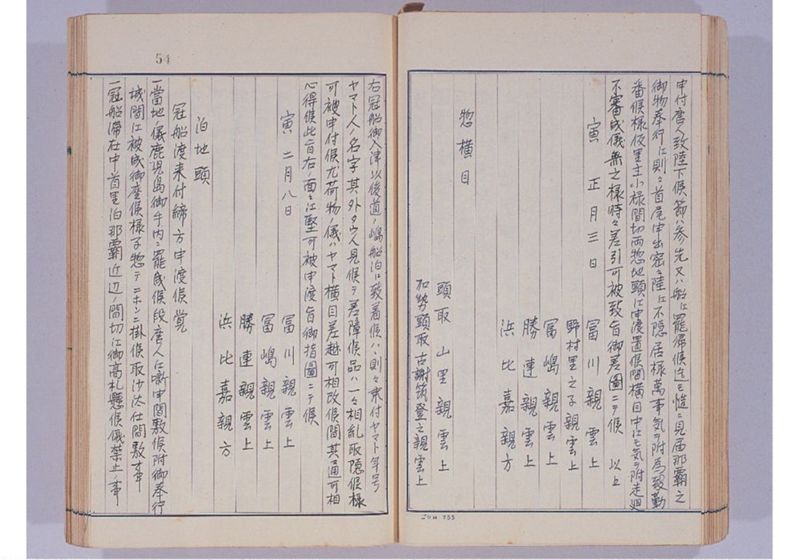 申付唐人致陸下候節ハ参先又ハ船江罷帰候迄も慥ニ見届那覇之
御物奉行江則々首尾申出密々陸ニ不隠居様萬事気ヲ附為致勤
番候様仮里主小禄間切両惣地頭江申渡置候間横目中ニも気ヲ附走廻
不審成儀無之様時々差引可被致旨御差図ニテ候 以上
寅 正月三日 冨川親雲上
野村里之子親雲上
冨嶋親雲上
勝連親雲上
浜比嘉親方
惣横目
頭取 山里親雲上
加勢頭取 古謝筑登之親雲上
54
右冠船御入津以後道ノ嶋船泊江致着候ハヽ則々乗付ヤマト年号
ヤマト人ノ名字其外タウ人見候テ差障候品ハ一々相乱取隠候様
可被申付候尤荷物ノ儀ハヤマト横目差越可相改候間其通可相
心得候此旨右ノ面々江堅可被申渡旨御指図ニテ候
寅 二月八日 冨川親雲上
冨嶋親雲上
勝連親雲上
浜比嘉親方
泊地頭
冠船渡来付締方申渡候覚
一當地ノ儀鹿児島御手内ニ罷成候段唐人江噺申間敷候附御奉行
城間江被成御座候様子惣テニホンニ掛候取沙汰仕間敷事
一冠船滞在中首里泊那覇近辺ノ間切江御高札懸候儀禁止ノ事